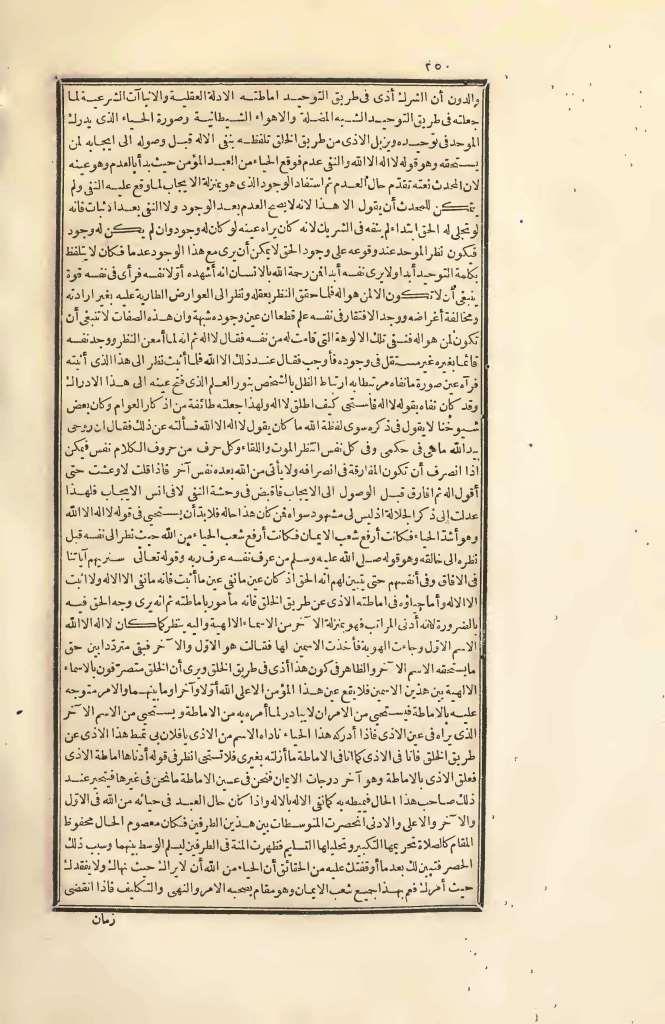 ٢٥٠
والدون أن الشرك أذى فى طريق التوحيد اماطته الادلة العقلية والانباآت الشرعية لما
جعلته فى طريق التوحيد الشبه المضلة والاهواء الشيطانية وصورة الحياء الذى يدرك
الموحد فى توحيده ويزيل الاذى من طريق الخلق تلفظه بنفى الاله قبل وصوله الى ايجابه لمن
يستحقه وهو قوله لا اله الا الله والنفى عدم فوقع الحياء من العبد المؤمن حيث بدأ بالعدم وهو عينه
لان المحدث نعته تقدم حال العدم ثم استفاد الوجود الذى هو بمنزلة الايجاب لما وقع عليه النفى ولم
يتمكن للمحدث أن يقول الا هذا لانه لا يصح العدم بعد الوجود ولا النفى بعد الاثبات فانه
لو تجلى له الحق ابتداء لم ينفه فى الشريك لانه كان يراه عينه لو كان له وجود وان لم يكن له وجود
فيكون نظر الموحد عند وقوعه على وجود الحق لا يمكن أن يرى مع هذا الوجود عدما فكان لا يتلفظ
بكلمة التوحيد أبدا ولا يرى نفسه أبدا فمن رحمة الله بالانسان انه أشهده أولا نفسه فرأى فى نفسه قوة
ينبغى أن لا تكون الا لمن هو اله فلما حقق النظر بعقله ونظر الى العوارض الطارية عليه بغير ارادته
ومخالفة أغراضه ووجد الافتقار فى نفسه علم قطعا ان عين وجوده شبهة وان هذه الصفات لا تنبغى أن
تكون لمن هو اله فنفى تلك الالوهة التى قامت له من نفسه فقال لا اله ثم انه لما أمعن النظر ووجد نفسه
قائما بغيره غير مستقل فى وجوده فأوجب فقال عند ذلك الا الله فلما أثبت نظر الى هذا الذى أثبته
فرآه عين صورة ما نفاه مرتبطا به ارتباط الظل بالشخص بنور العلم الذى فتح عينه الى هذا الادراك
وقد كان نفاه بقوله لا اله فاستحيى كيف اطلق لا اله ولهذا جعلته طائفة من اذكار العوام وكان بعض
شيوخنا لا يقول فى ذكره سوى لفظة الله ما كان يقول لا اله الا الله فسألته عن ذلك فقال ان روحى
بيد الله ماهى فى حكمى وفى كل نفس انتظر الموت واللقاء وكل حرف من حروف الكلام نفس فيمكن
اذا انصرف أن تكون المفارقة فى انصرافه ولا يأتى من الله بعده نفس آخر فاذا قلت لا وعشت حتى
أقول اله ثم افارق قبل الوصول الى الايجاب فاقبض فى وحشة النفى لا فى انس الايجاب فلهذا
عدلت الى ذكر الجلالة اذ ليس لى مشهود سواه فمن كان هذا حاله فلا بد أن يستحيى فى قوله لا اله الا الله
وهو أشد الحياء فكانت أرفع شعب الايمان فكانت أرفع شعب الحياء من الله حيث نظر الى نفسه قبل
نظره الى خالقه وهو قوله صلى الله عليه وسلم من عرف نفسه عرف ربه وقوله تعالى سنريهم آياتنا
فى الآفاق وفى أنفسهم حتى يتبين لهم انه الحق اذ كان عين ما نفى عين ما أثبت فانه ما نفى الا الاله ولا اثبت
الا الاله وأما حياؤه فى اماطته الاذى عن طريق الخلق فانه مأمور باماطته ثم انه يرى وجه الحق فيه
بالضرورة لانه أدنى المراتب فهو بمنزلة الآخر من الاسماء الالهية واليه ينظر كما كان لا اله الا الله
الاسم الاول وجاءت الهوية فأخذت الاسمين لها فقالت هو الاول والآخر فبقى مترددا بين حق
ما يستحقه الاسم الآخر والظاهر فى كون هذا أذى فى طريق الخلق ويرى أن الخلق متصرفون بالاسماء
الالهية بين هذين الاسمين فلا يقع عين هذا المؤمن الا على الله أولا وآخرا وما بينهما والامر متوجه
عليه بالاماطة فيستحيى من الامر أن لا يبادر لما أمره به من الاماطة ويستحيى من الاسم الآخر
الذى يراه فى عين الاذى فاذا أدركه هذا الحياء ناداه الاسم من الاذى يا فلان بى تميط هذا الاذى عن
طريق الخلق فانا فى الاذى كما انا فى الاماطة ما أزلته بغيرى فلا تستحى انظر فى قوله أدناها اماطة الاذى
فعلق الاذى بالاماطة وهو آخر درجات الايمان فنحن فى عين الاماطة ما نحن فى غيرها فيتحير عند
ذلك صاحب هذا الحال فيميطه به كما نفى الاله بالاله واذا كان حال العبد فى حيائه من الله فى الاول
والآخر والاعلى والادنى انحصرت المتوسطات بين هذين الطرفين فكان معصوم الحال محفوظ
المقام كالصلاة تحريمها التكبير وتحليلها التسليم فظهرت المنة فى الطرفين ليسلم الوسط بينهما وسبب ذلك
الحصر فتبين لك بعد ما أوقفتك عليه من الحقائق أن الحياء من الله أن لا يراك حيث نهاك ولا يفقدك
حيث أمرك فم بهذا جميع شعب الايمان وهو مقام يصحبه الامر والنهى والتكليف فاذا انقضى
زمان